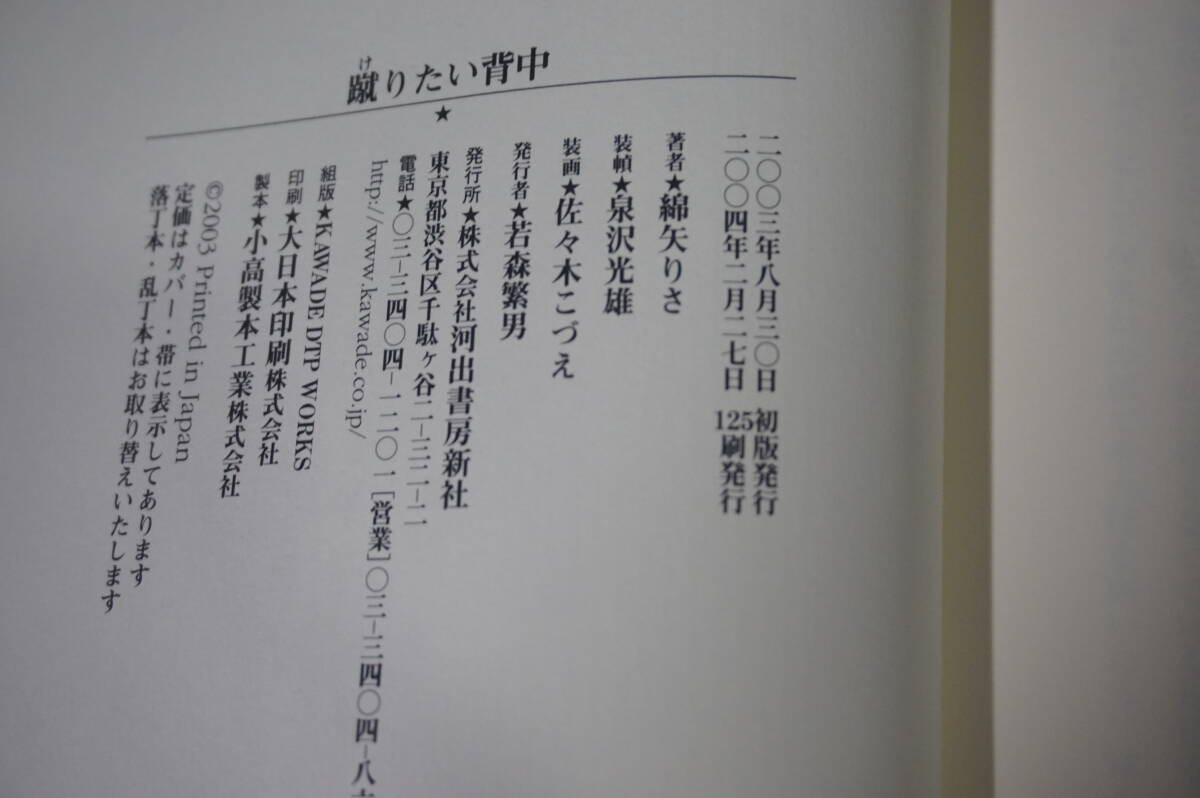 蹴りたい背中
け
★
二〇〇三年八月三〇日 初版発行
二〇〇四年二月二七日 125刷発行
著者★綿矢りさ
装幀★泉沢光雄
装画★佐々木こづえ
発行者★若森繁男
発行所★株式会社河出書房新社
東京都渋谷区千駄ヶ谷二-三二-二
電話★〇三-三四〇四-一二〇一［営業］〇三-三四〇四-八
http://www.kawade.co.jp/
組版★KAWADE DTP WORKS
印刷★大日本印刷株式会社
製本★小高製本工業株式会社
©2003 Printed in Japan
定価はカバー・帯に表示してあります
落丁本・乱丁本はお取り替えいたします